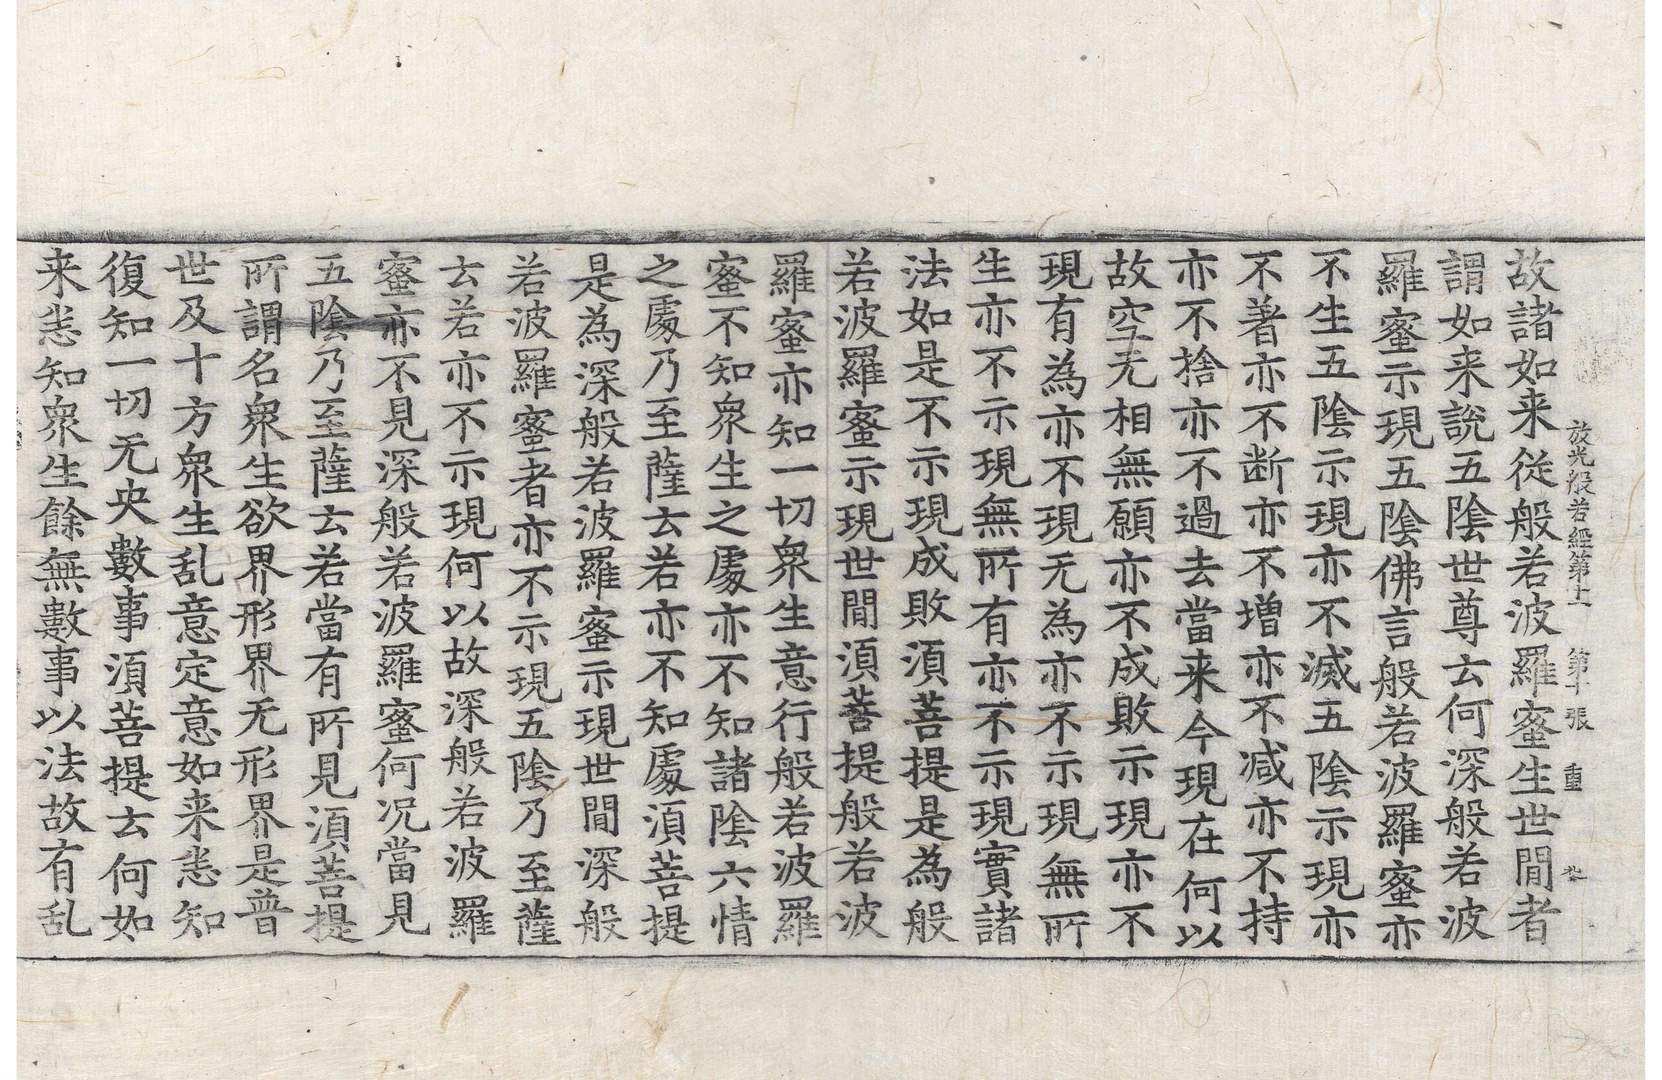 放光般若經第十一 第十張 重 㘴
故諸如来從般若波羅蜜生世間者
謂如来說五陰世尊云何深般若波
羅蜜示現五陰佛言般若波羅蜜亦
不生五陰示現亦不滅五陰示現亦
不著亦不断亦不增亦不減亦不持
亦不捨亦不過去當来今現在何以
故空无相無願亦不成敗示現亦不
現有為亦不現无為亦不示現無所
生亦不示現無所有亦不示現實諸
法如是不示現成敗湏菩提是為般
若波羅蜜示現世間湏菩提般若波
羅蜜亦知一切衆生意行般若波羅
蜜不知衆生之處亦不知諸陰六情
之處乃至薩云若亦不知處湏菩提
是為深般若波羅蜜示現世間深般
若波羅蜜者亦不示現五陰乃至薩
云若亦不示現何以故深般若波羅
蜜亦不見深般若波羅蜜何况當見
五陰乃至薩云若當有所見湏菩提
所謂名衆生欲界形界无形界是普
世及十方衆生乱意定意如来悉知
復知一切无央數事湏菩提云何如
来悉知衆生餘無數事以法故有乱